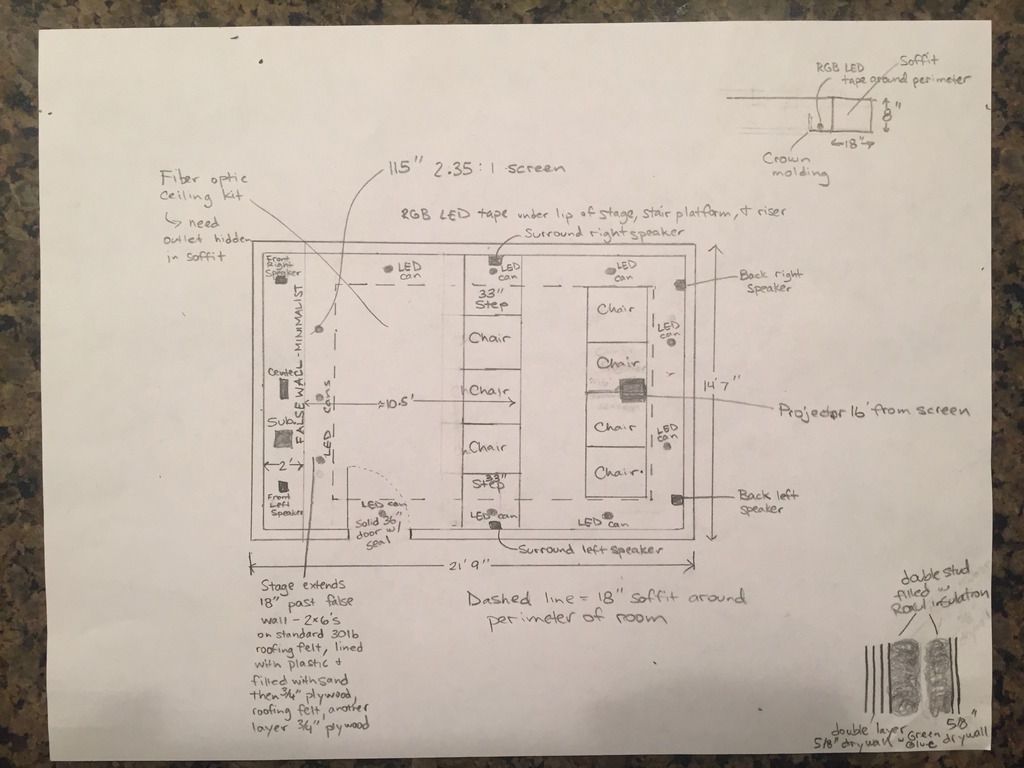 RGB LED
tape around perimeter
Soffit
8"
18"
Crown
molding
115" 2.35:1 screen
Fiber optic
ceiling kit
↳ need
outlet hidden
in soffit
RGB LED tape under lip of stage, stair platform, + riser
Surround right speaker
Front
Right
Speaker
LED
can
LED
can
LED
can
Back right
speaker
FALSE WALL - MINIMALIST
33"
Step
Chair
Chair
LED
can
Center
LED cans
≈10.5'
Chair
Chair
14'7"
Projector 16' from screen
Sub
Chair
Chair
LED
can
2'
Chair
Chair
33"
Step
Front
Left
Speaker
LED can
Solid 36"
door w/
seal
LED can
LED can
Back left
speaker
Surround left speaker
21'9"
Stage extends
18" past false
wall - 2x6's
on standard 30lb
roofing felt, lined
with plastic +
filled with sand
then 3/4" plywood,
roofing felt, another
layer 3/4" plywood
Dashed line = 18" soffit around
perimeter of room
double stud
filled w/
insulation
double layer
5/8" drywall w/ Green
Glue
5/8"
drywall